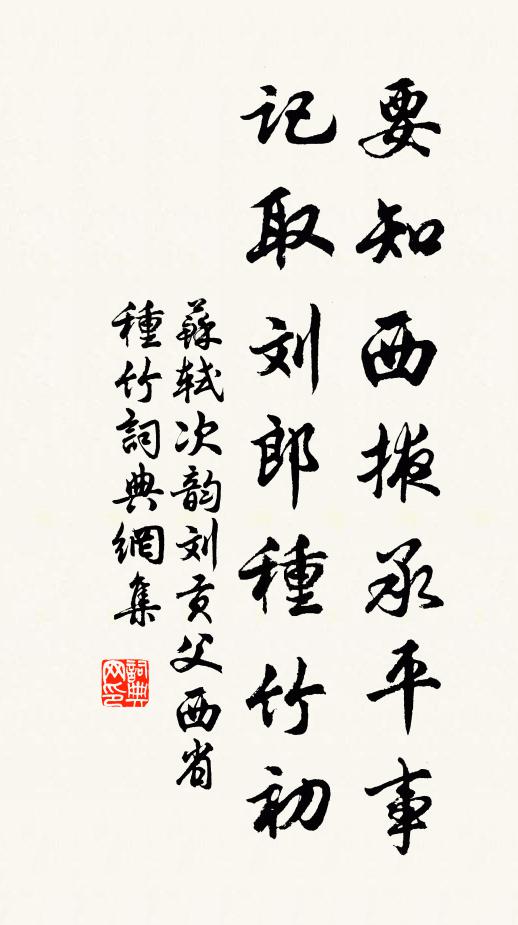 要知西掖承平事
记取刘郎種竹初
蘇轼次韵刘贡父西省
種竹詞典網集
詞典网印